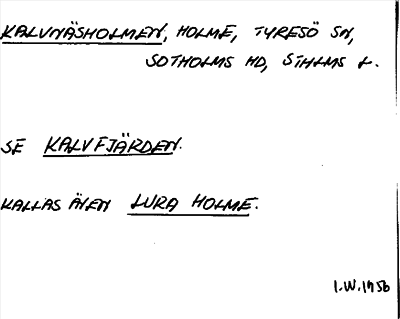 KALVNÄSHOLMEN, HOLME, TYRESÖ SN,
SOTHOLMS HD, STHLMS L.
SE KALVFJÄRDEN.
KALLAS ÄVEN LURA HOLME.
I.W.1956